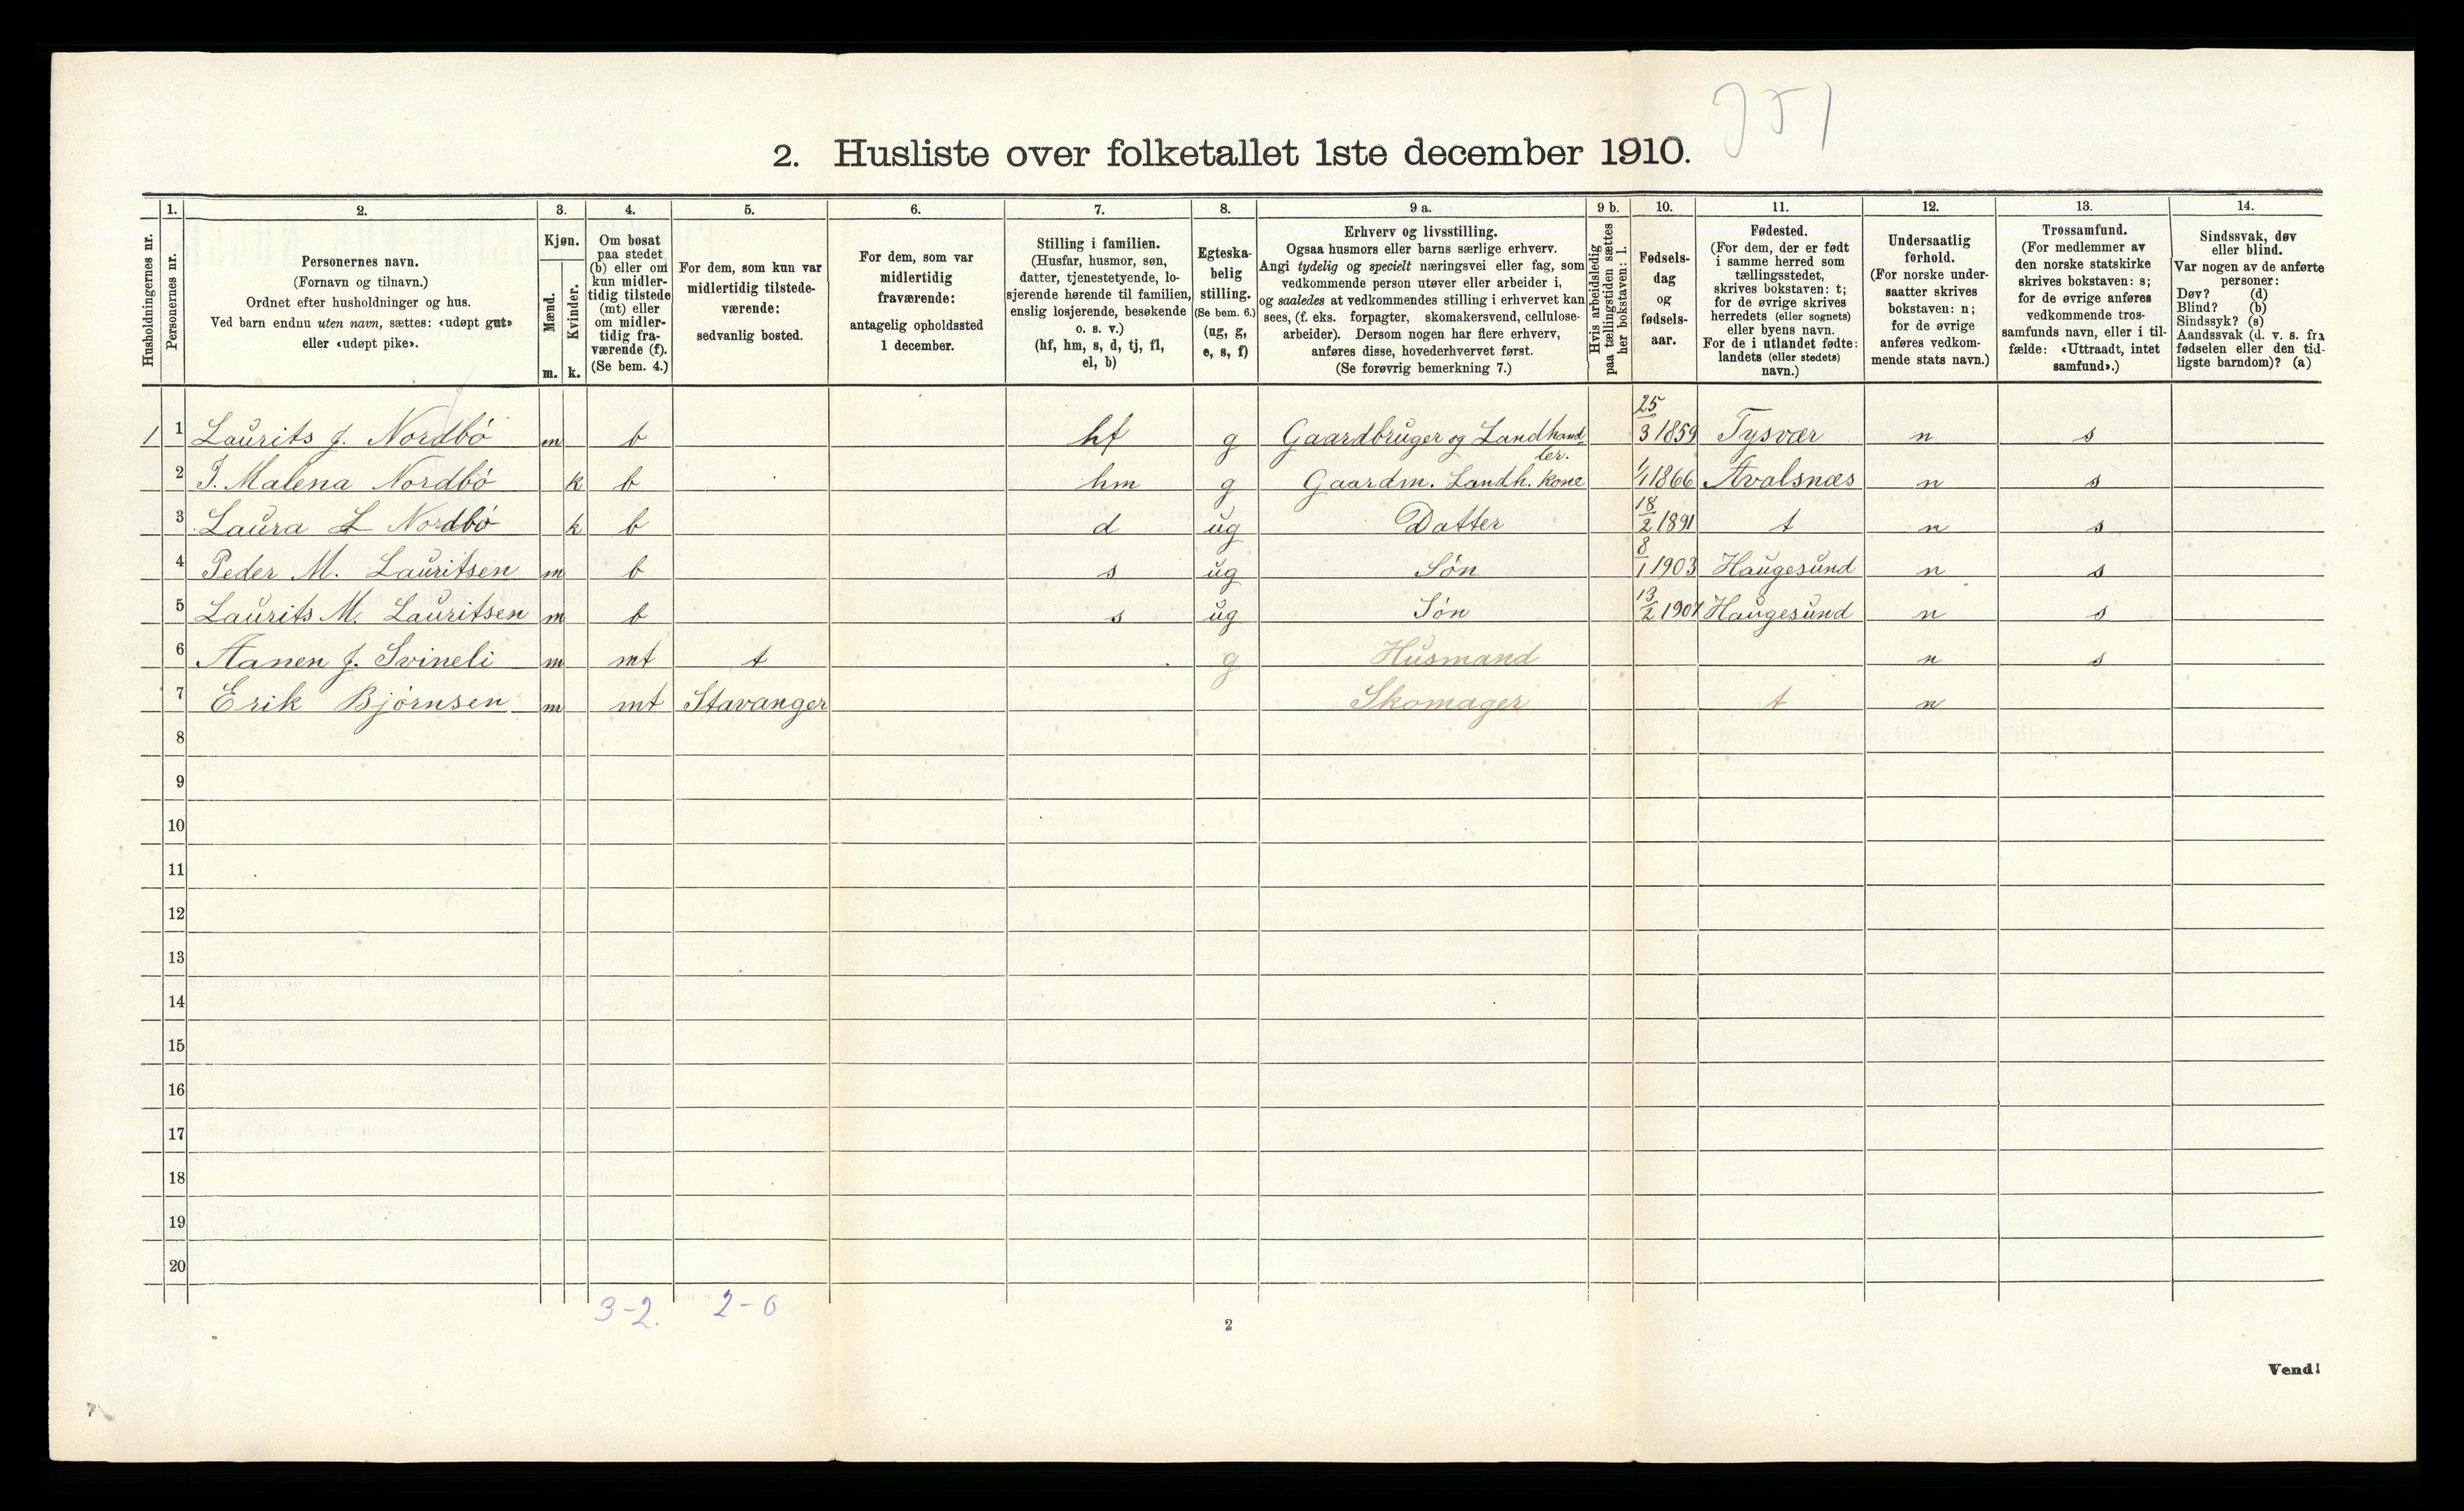 2. Husliste over folketallet 1ste december 1910.
1. 2. 3. 4. 5. 6. 7. 8. 9 a. 9 b. 10. 11. 12. 13. 14.
Husholdningernes nr.
Personernes nr.
Personernes navn.
(Fornavn og tilnavn.)
Ordnet efter husholdninger og hus.
Ved barn endnu uten navn, sættes: «udøpt gut»
eller «udøpt pike».
Kjøn.
Mænd.
Kvinder.
m. k.
Om bosat
paa stedet
(b) eller om
kun midler-
tidig tilstede
(mt) eller
om midler-
tidig fra-
værende (f).
(Se bem. 4.)
For dem, som kun var
midlertidig tilstede-
værende:
sedvanlig bosted.
For dem, som var
midlertidig
fraværende:
antagelig opholdssted
1 december.
Stilling i familien.
(Husfar, husmor, søn,
datter, tjenestetyende, lo-
sjerende hørende til familien,
enslig losjerende, besøkende
o. s. v.)
(hf, hm, s, d, tj, fl,
el, b)
Egteska-
belig
stilling.
(Se bem. 6.)
(ug, g,
e, s, f)
Erhverv og livsstilling.
Ogsaa husmors eller barns særlige erhverv.
Angi tydelig og specielt næringsvei eller fag, som
vedkommende person utøver eller arbeider i,
og saaledes at vedkommendes stilling i erhvervet kan
sees, (f. eks. forpagter, skomakersvend, cellulose-
arbeider). Dersom nogen har flere erhverv,
anføres disse, hovederhvervet først.
(Se forøvrig bemerkning 7.)
Hvis arbeidsledig
paa tællingstiden sættes
her bokstaven: l.
Fødsels-
dag
og
fødsels-
aar.
Fødested.
(For dem, der er født
i samme herred som
tællingsstedet,
skrives bokstaven: t;
for de øvrige skrives
herredets (eller sognets)
eller byens navn.
For de i utlandet fødte:
landets (eller stedets)
navn.)
Undersaatlig
forhold.
(For norske under-
saatter skrives
bokstaven: n;
for de øvrige
anføres vedkom-
mende stats navn.)
Trossamfund.
(For medlemmer av
den norske statskirke
skrives bokstaven: s;
for de øvrige anføres
vedkommende tros-
samfunds navn, eller i til-
fælde: «Uttraadt, intet
samfund».)
Sindssvak, døv
eller blind.
Var nogen av de anførte
personer:
Døv? (d)
Blind? (b)
Sindssyk? (s)
Aandssvak (d. v. s. fra
fødselen eller den tid-
ligste barndom)? (a)
1 1 Laurits J. Nordbö m b hf g Gaardbruger og Landhand-
ler. 25/3 1859 Tysvær n s
2 I. Malena Nordbö k b hm g Gaardm. Landh. kone 1/1 1866 Avalsnæs n s
3 Laura L Nordbö k b d ug Datter 18/2 1891 t n s
4 Peder M. Lauritsen m b s ug Sön 8/1 1903 Haugesund n s
5 Laurits M. Lauritsen m b s ug Sön 13/2 1907 Haugesund n s
6 Aanen J. Svineli m mt t g Husmand n s
7 Erik Björnsen m mt Stavanger Skomager t n
8
9
10
11
12
13
14
15
16
17
18
19
20
3-2. 2-0
2
Vend!